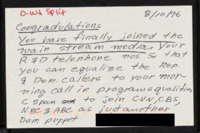 O-Wt Split
8/10/96
Congradulations
You have finally joined the
main stream media. Your
R & D telephone nos. so that
you can equalize the Rep
& Dem callers to your mor-
ning call in program equalifies
C Span to join CNN, CBS,
NBC & ABC as just another
Dem poppet